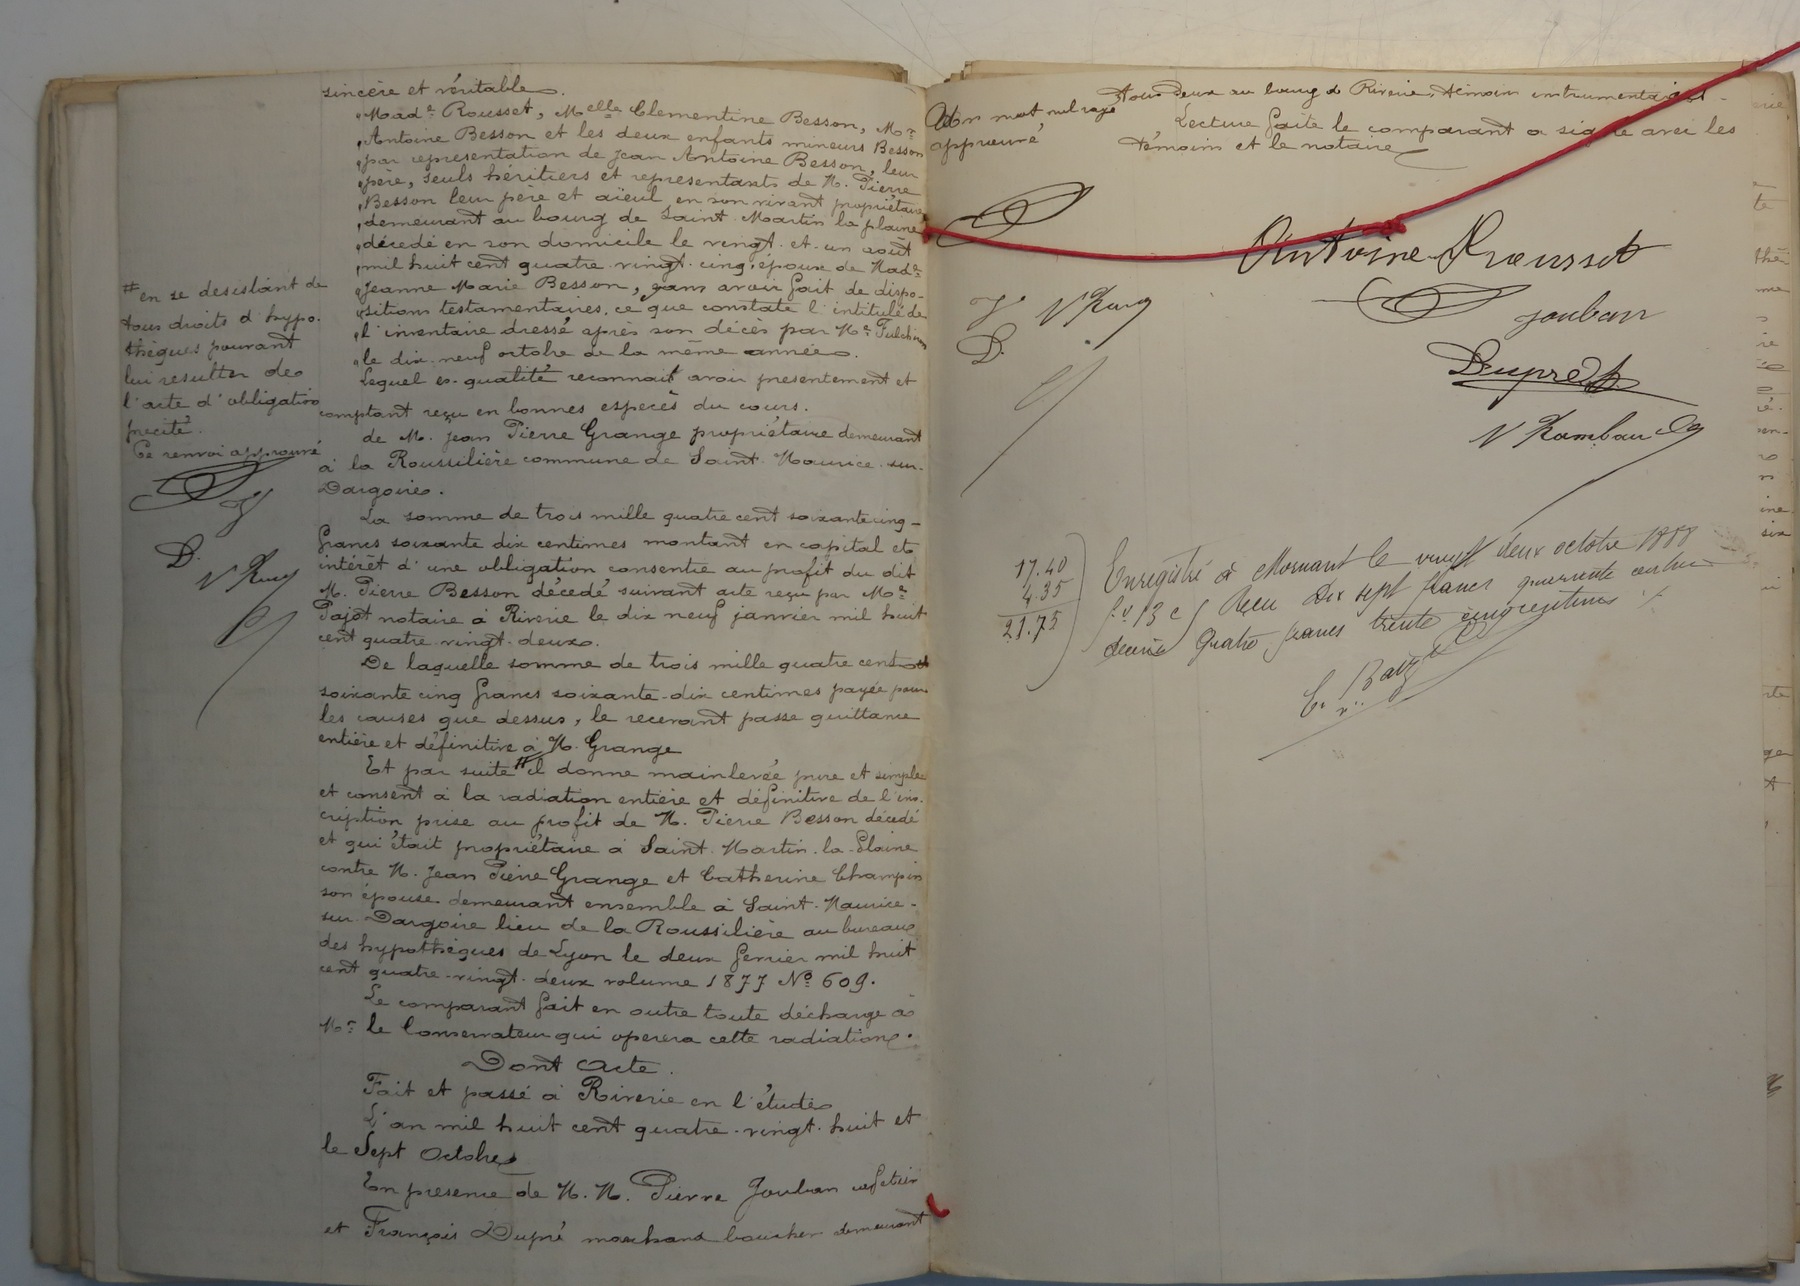 sincère et véritable.
„Made Rousset, Melle Clementine Besson, Mr
„Antoine Besson et les deux enfants mineurs Besson
„par representation de Jean Antoine Besson, leur
„père, seuls héritiers et representants de M. Pierre
„Besson leur père et aïeul, en son vivant propriétaire
„demeurant au bourg de Saint Martin la plaine
„décedé en son domicile le vingt et un août
„mil huit cent quatre vingt cinq, époux de Made
„Jeanne Marie Besson, sans avoir fait de dispo-
„sitions testamentaires, ce que constate l'intitulé de
„l'inventaire dressé après son décès par Me
„le dix neuf octobre de la même année.
Lequel ès-qualité reconnait avoir presentement et
comptant reçu en bonnes espècès du cours.
de M. Jean Pierre Grange propriétaire demeurant
à la Roussilière commune de Saint Maurice sur-
Dargoire.
La somme de trois mille quatre cent soixante cinq-
francs soixante dix centimes montant en capital et
intérêt d'une obligation consentie au profit du dit
M. Pierre Besson décédé suivant acte reçu par Me
Pajot notaire à Riverie le dix neuf janvier mil huit
cent quatre-vingt-deux.
De laquelle somme de trois mille quatre cent
soixante cinq francs soixante-dix centimes payée pour
les causes que dessus, le recevant passe quittance
entière et définitive à M. Grange
Et par suite # il donne mainlevée pure et simple
et consent à la radiation entière et définitive de l'ins-
cription prise au profit de M. Pierre Besson décédé
et qui était propriétaire à Saint-Martin-la-Plaine
contre M. Jean Pierre Grange et Catherine Champin
son épouse demeurant ensemble à Saint-Maurice-
sur-Dargoire lieu de la Roussilière au bureau
des hypothèques de Lyon le deux fevrier mil huit
cent quatre-vingt-deux volume 1877 No 609.
Le comparant fait en outre toute décharge à
Mr le Conservateur qui operera cette radiation.
Dont Acte.
Fait et passé à Riverie en l'étude
L'an mil huit cent quatre-vingt-huit et
le Sept Octobre
En presence de M. M. Pierre Jouban cafetier
et François Dupré marchand boucher demeurant
# en se desistant de
tous droits d'hypo-
thèques pouvant
lui resulter de
l'acte d'obligation
precité.
Ce renvoi approuvé
J
D.
tous deux au bourg de Riverie, témoins instrumentaires.
Lecture faite le comparant a signé avec les
témoins et le notaire
Un mot nul rayé
approuvé
J
D.
Antoine Rousset
Jouban
Dupré
17.40
4.35
21.75
Enregistré à Mornant le vingt deux octobre 1888
fo 13 c Reçu Dix sept francs quarante centimes
décimes quatre francs trente cinq centimes